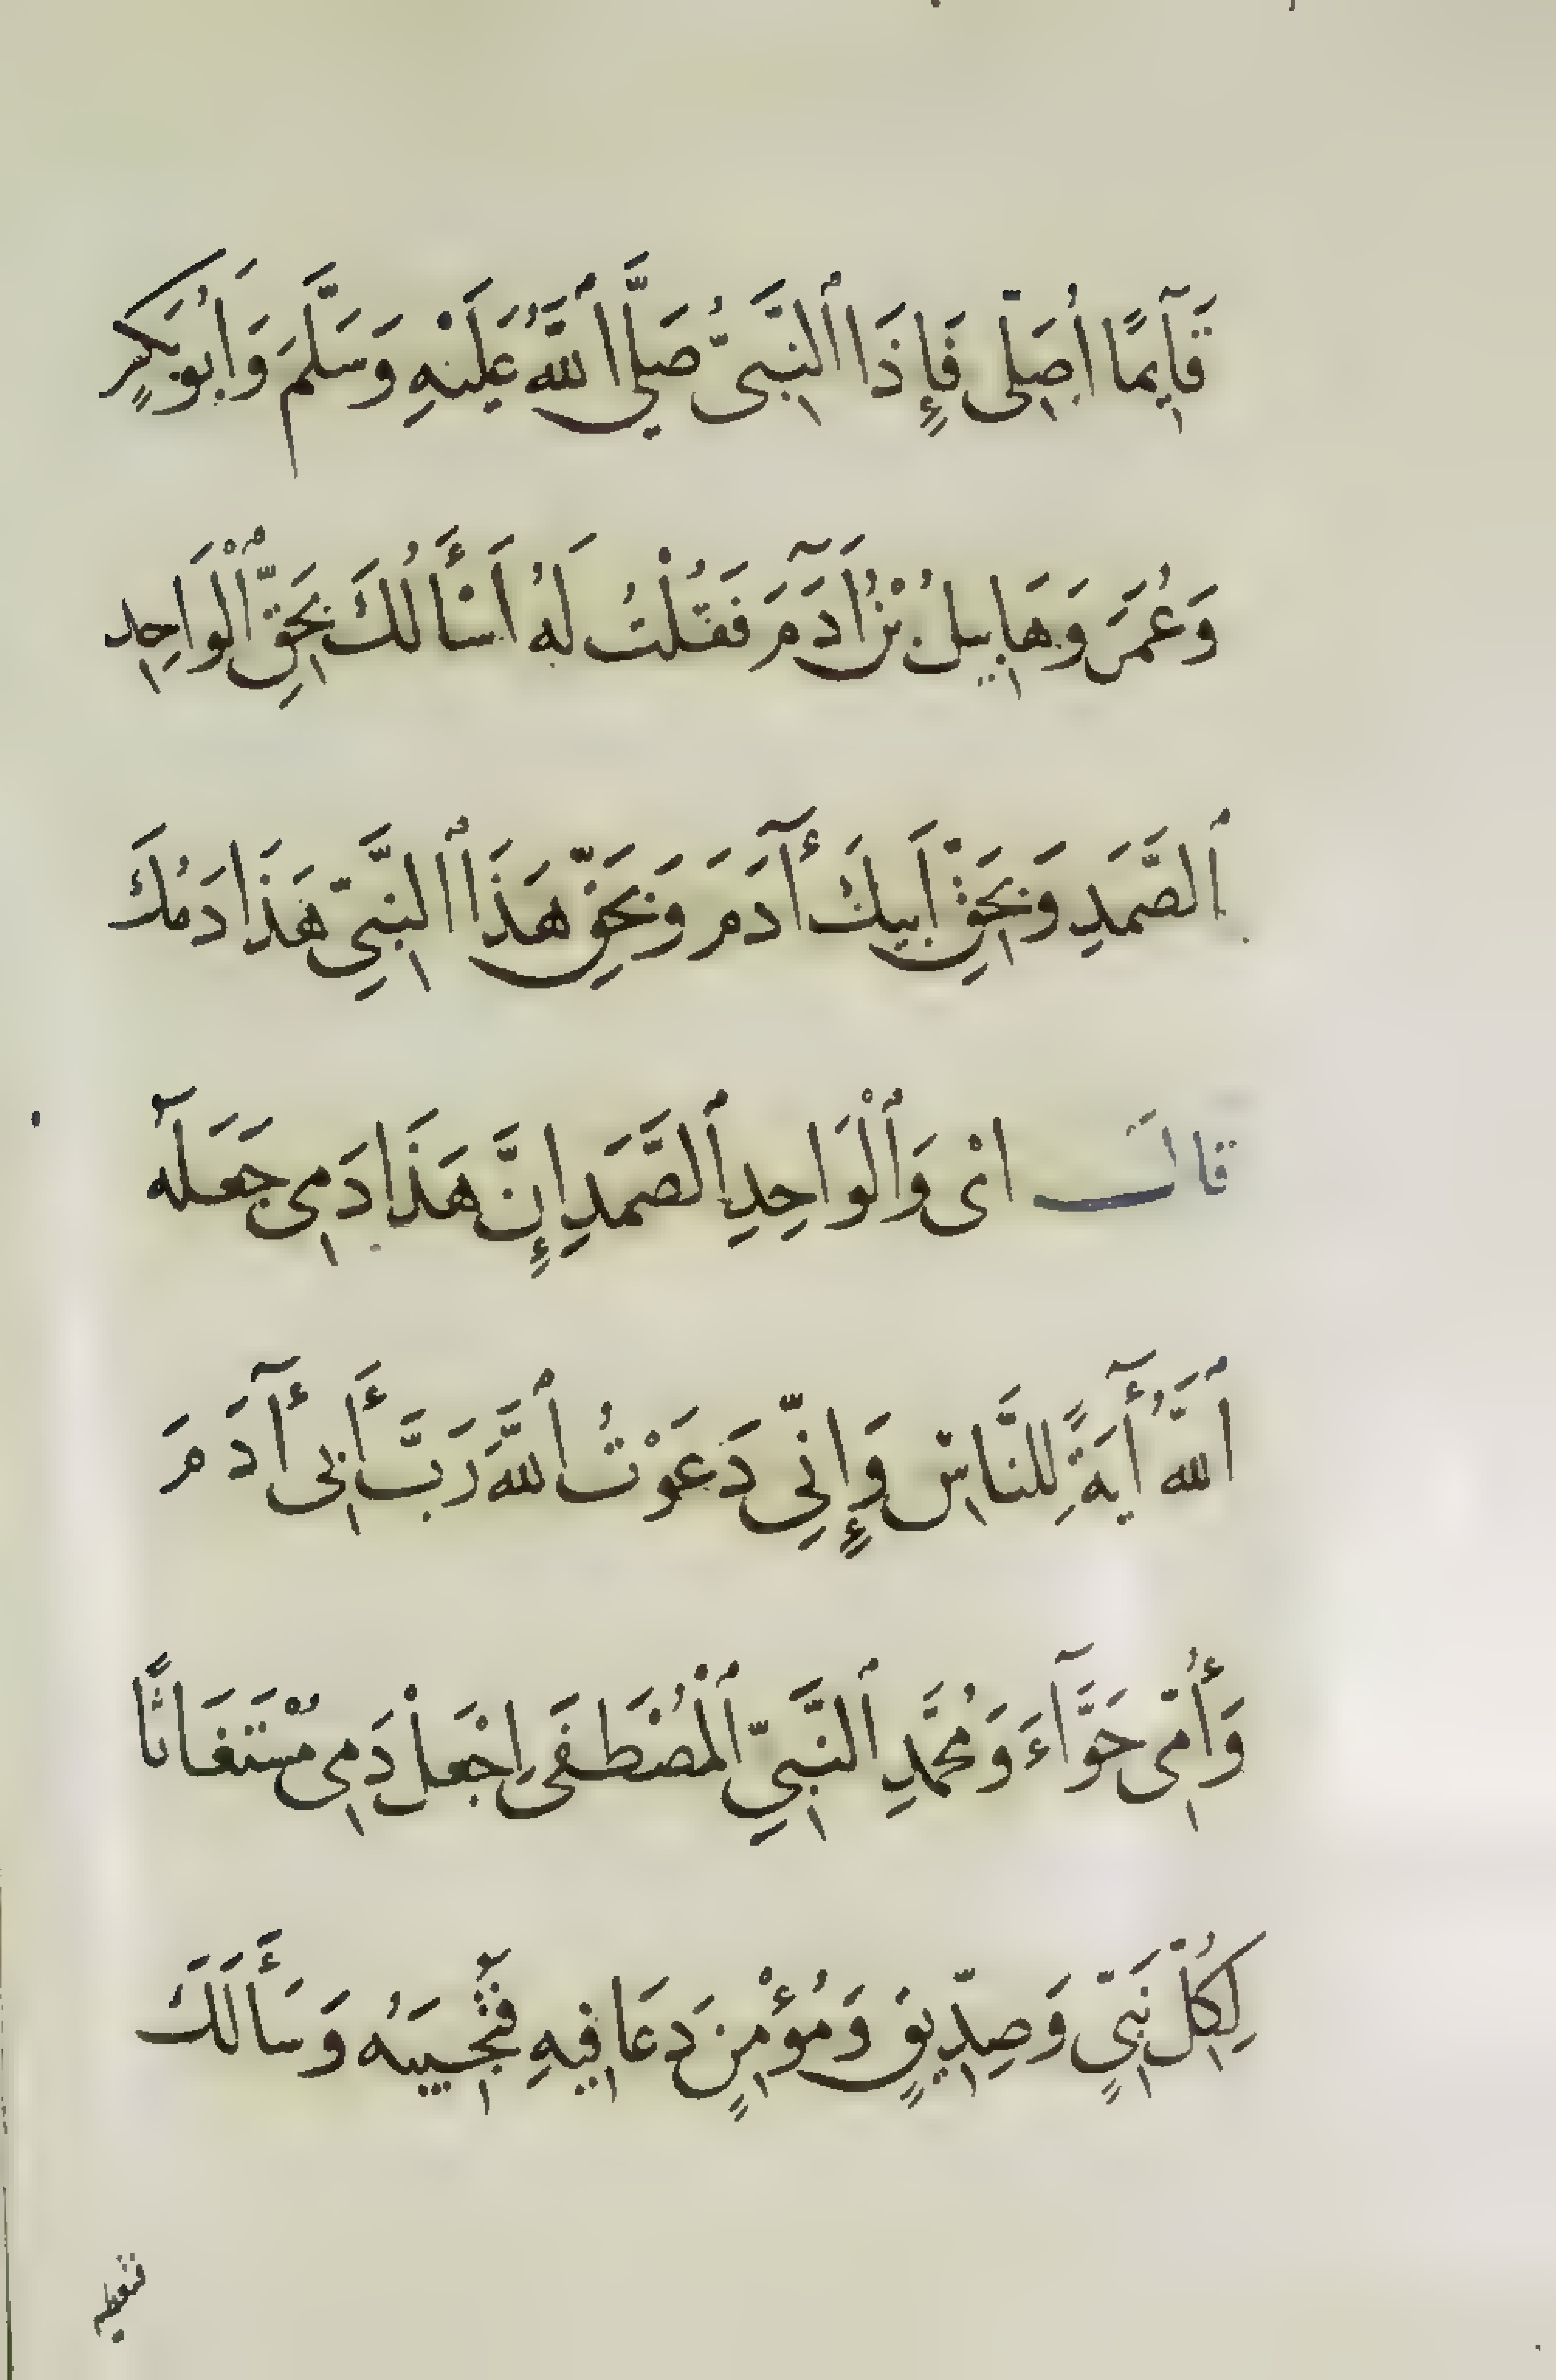 قَآيِمًا أُصَلِّى فَإِذَا ٱلنَّبِىُّ صَلَّى ٱللَّهُ عَلَيْهِ وَسَلَّمَ وَأَبُوبَكْرٍ
وَعُمَرَ وَهَابِيلُ بْنُ اَدَمَ فَقُلْتُ لَهُ اَسْأَلُكَ بِحَقِّ ٱلْوَاحِدِ
ٱلصَّمَدِ وَبِحَقِّ اَبِيكَ ءَآدَمَ وَبِحَقِّ هَذَا ٱلنَّبِيِّ هَذَا دَمُكَ
قَالَ اىْ وَٱلْوَاحِدِ ٱلصَّمَدِ إِنَّ هَذَا دَمِى جَعَلَهُ
ٱللَّهُ ءَايَةً لِلنَّاسِ وَإِنِّى دَعَوْتُ ٱللَّهَ رَبَّ أَبِى ءَآدَمَ
وَأُمِّى حَوَّآءَ وَمُحَمَّدِ ٱلنَّبِيِّ ٱلْمُصْطَفَى اِجْعَلْ دَمِى مُسْتَغَاثًا
لِكُلِّ نَبِىٍّ وَصِدِّيقٍ وَمُؤْمِنٍ دَعَا فِيهِ فَتُجِيبَهُ وَسَأَلَكَ
فتعطيه